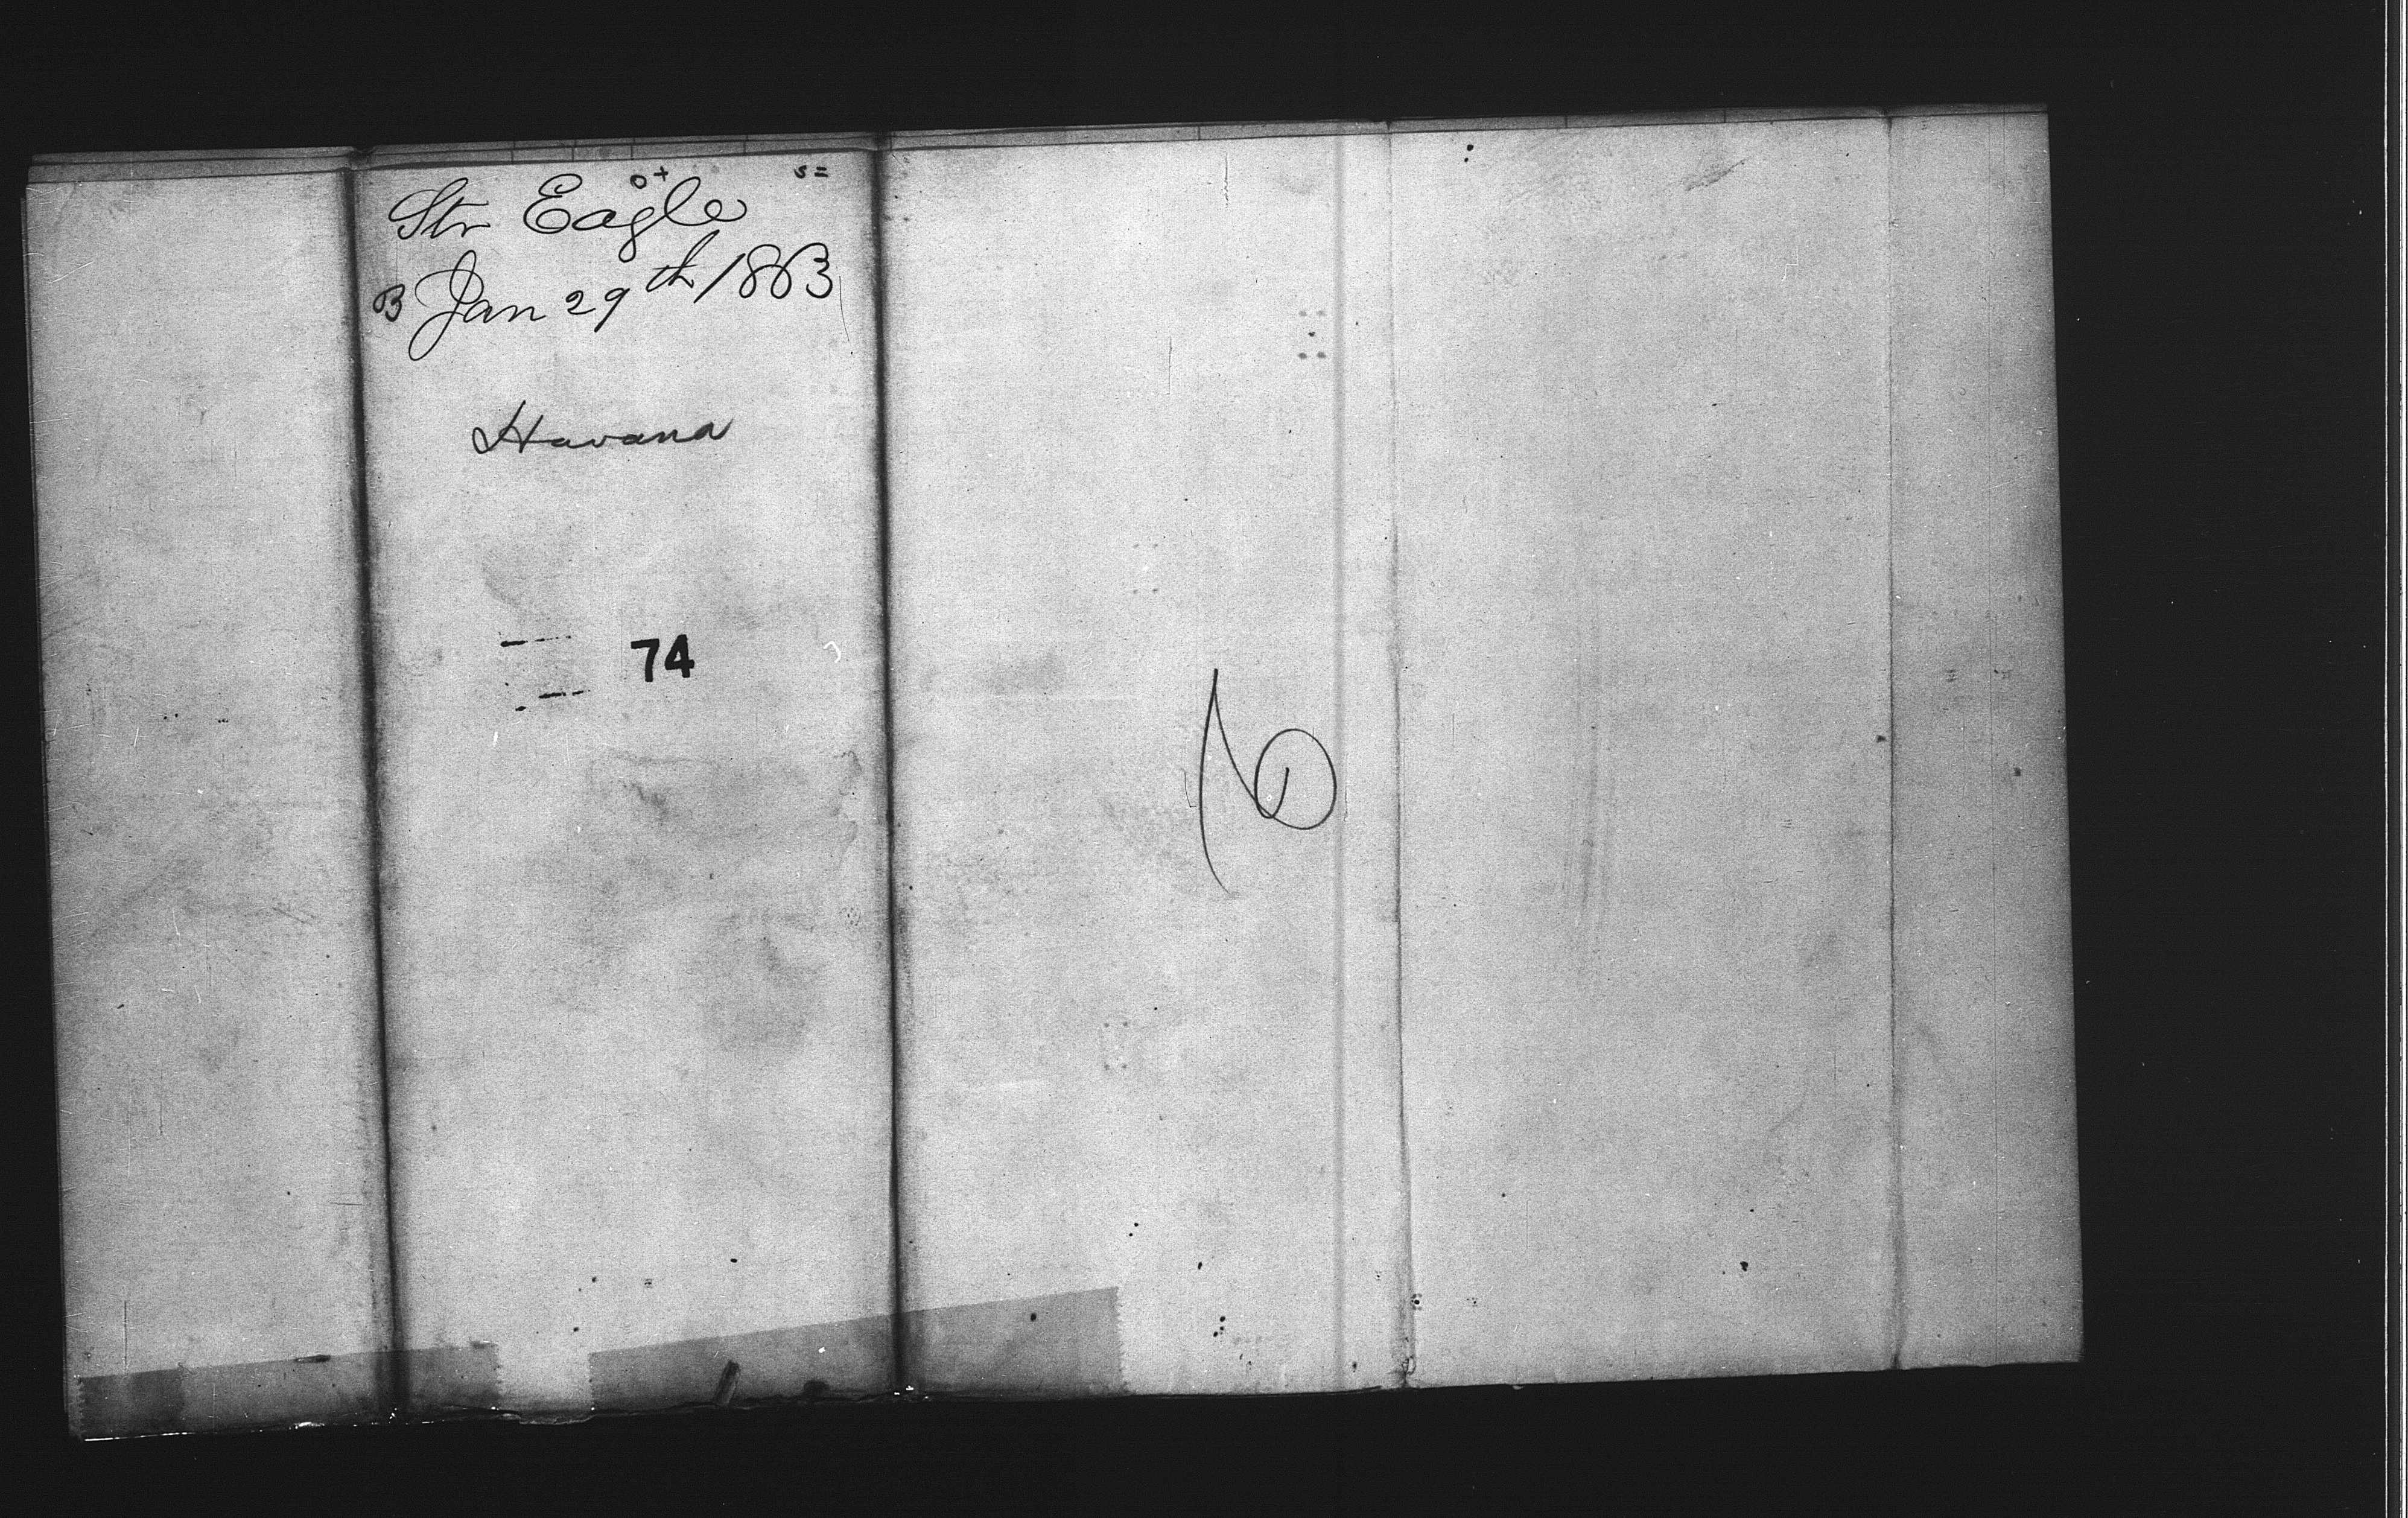 Str Eagle
B Jan 29th 1863
Havana
74